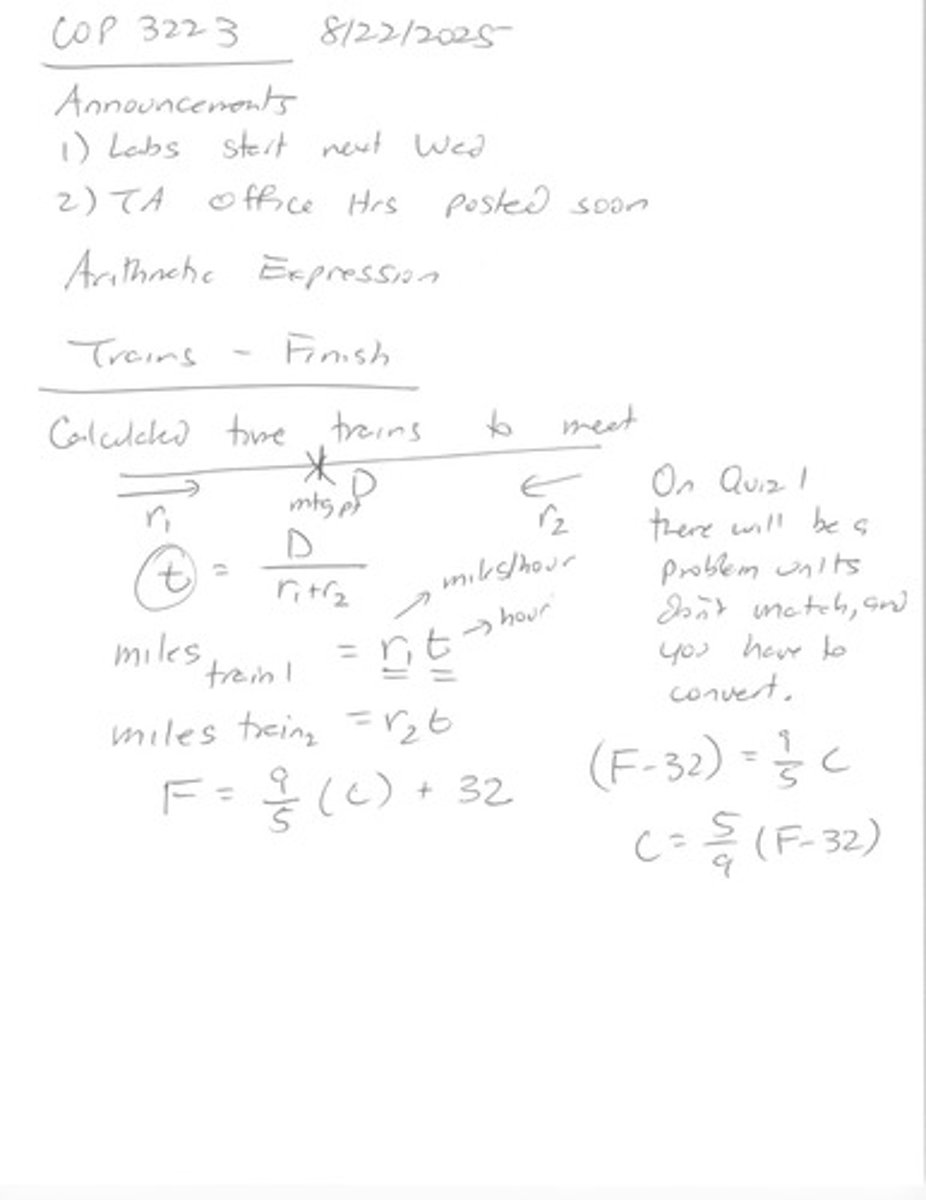 COP 3223 8/22/2025
Announcements
1) Labs start next Wed
2) TA office Hrs posted soon
Arithmetic Expression
Trains - Finish
Calculated time trains to meet
D
mtg pt
r₁
r₂
t = D / (r₁+r₂)
miles/hour
hour
miles train 1 = r₁t
miles train₂ = r₂t
F = 9/5 (C) + 32
On Quiz 1
there will be a
problem units
don't match, and
you have to
convert.
(F-32) = 9/5 C
C = 5/9 (F-32)